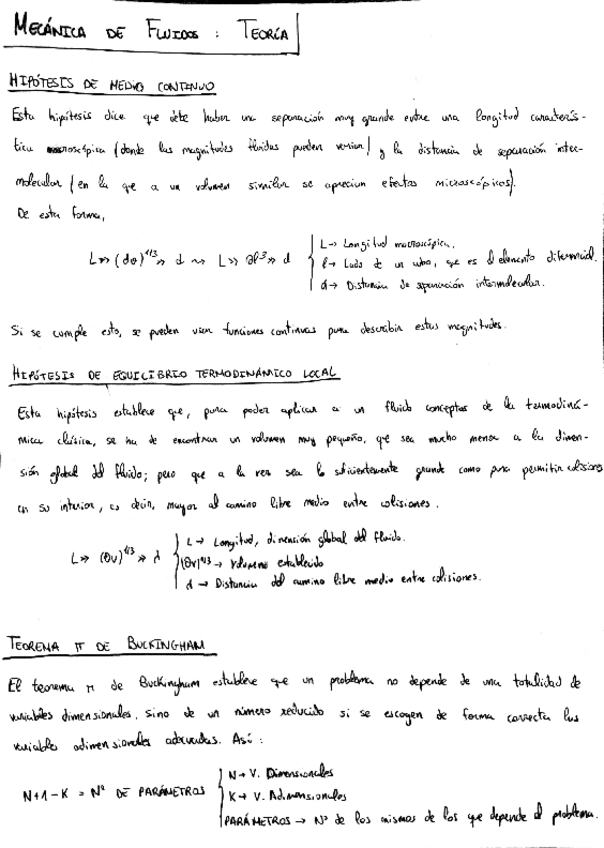 MECÁNICA DE FLUIDOS : TEORÍA
HIPÓTESIS DE MEDIO CONTINUO
Esta hipótesis dice que debe haber una separación muy grande entre una longitud caracterís-
tica macroscópica (donde las magnitudes fluidas pueden variar) y la distancia de separación inter-
molecular (en la que a un volumen similar se aprecian efectos microscópicos).
De esta forma,
L >> (dv)^1/3 >> d ~> L >> ∂l³ >> d
L → Longitud macroscópica.
l → Lado de un cubo, que es el elemento diferencial.
d → Distancia de separación intermolecular.
Si se cumple esto, se pueden usar funciones continuas para describir estas magnitudes.
HIPÓTESIS DE EQUILIBRIO TERMODINÁMICO LOCAL
Esta hipótesis establece que, para poder aplicar a un fluido conceptos de la termodiná-
mica clásica, se ha de encontrar un volumen muy pequeño, que sea mucho menor a la dimen-
sión global del fluido; pero que a la vez sea lo suficientemente grande como para permitir colisiones
en su interior, es decir, mayor al camino libre medio entre colisiones.
L >> (∂v)^1/3 >> λ
L → Longitud, dimensión global del fluido.
(∂v)^1/3 → Volumen establecido
λ → Distancia del camino libre medio entre colisiones.
TEOREMA π DE BUCKINGHAM
El teorema π de Buckingham establece que un problema no depende de una totalidad de
variables dimensionales, sino de un número reducido si se escogen de forma correcta las
variables adimensionales adecuadas. Así :
N+1-K = Nº DE PARÁMETROS
N → V. Dimensionales
K → V. Adimensionales
PARÁMETROS → Nº de los mismos de los que depende el problema.